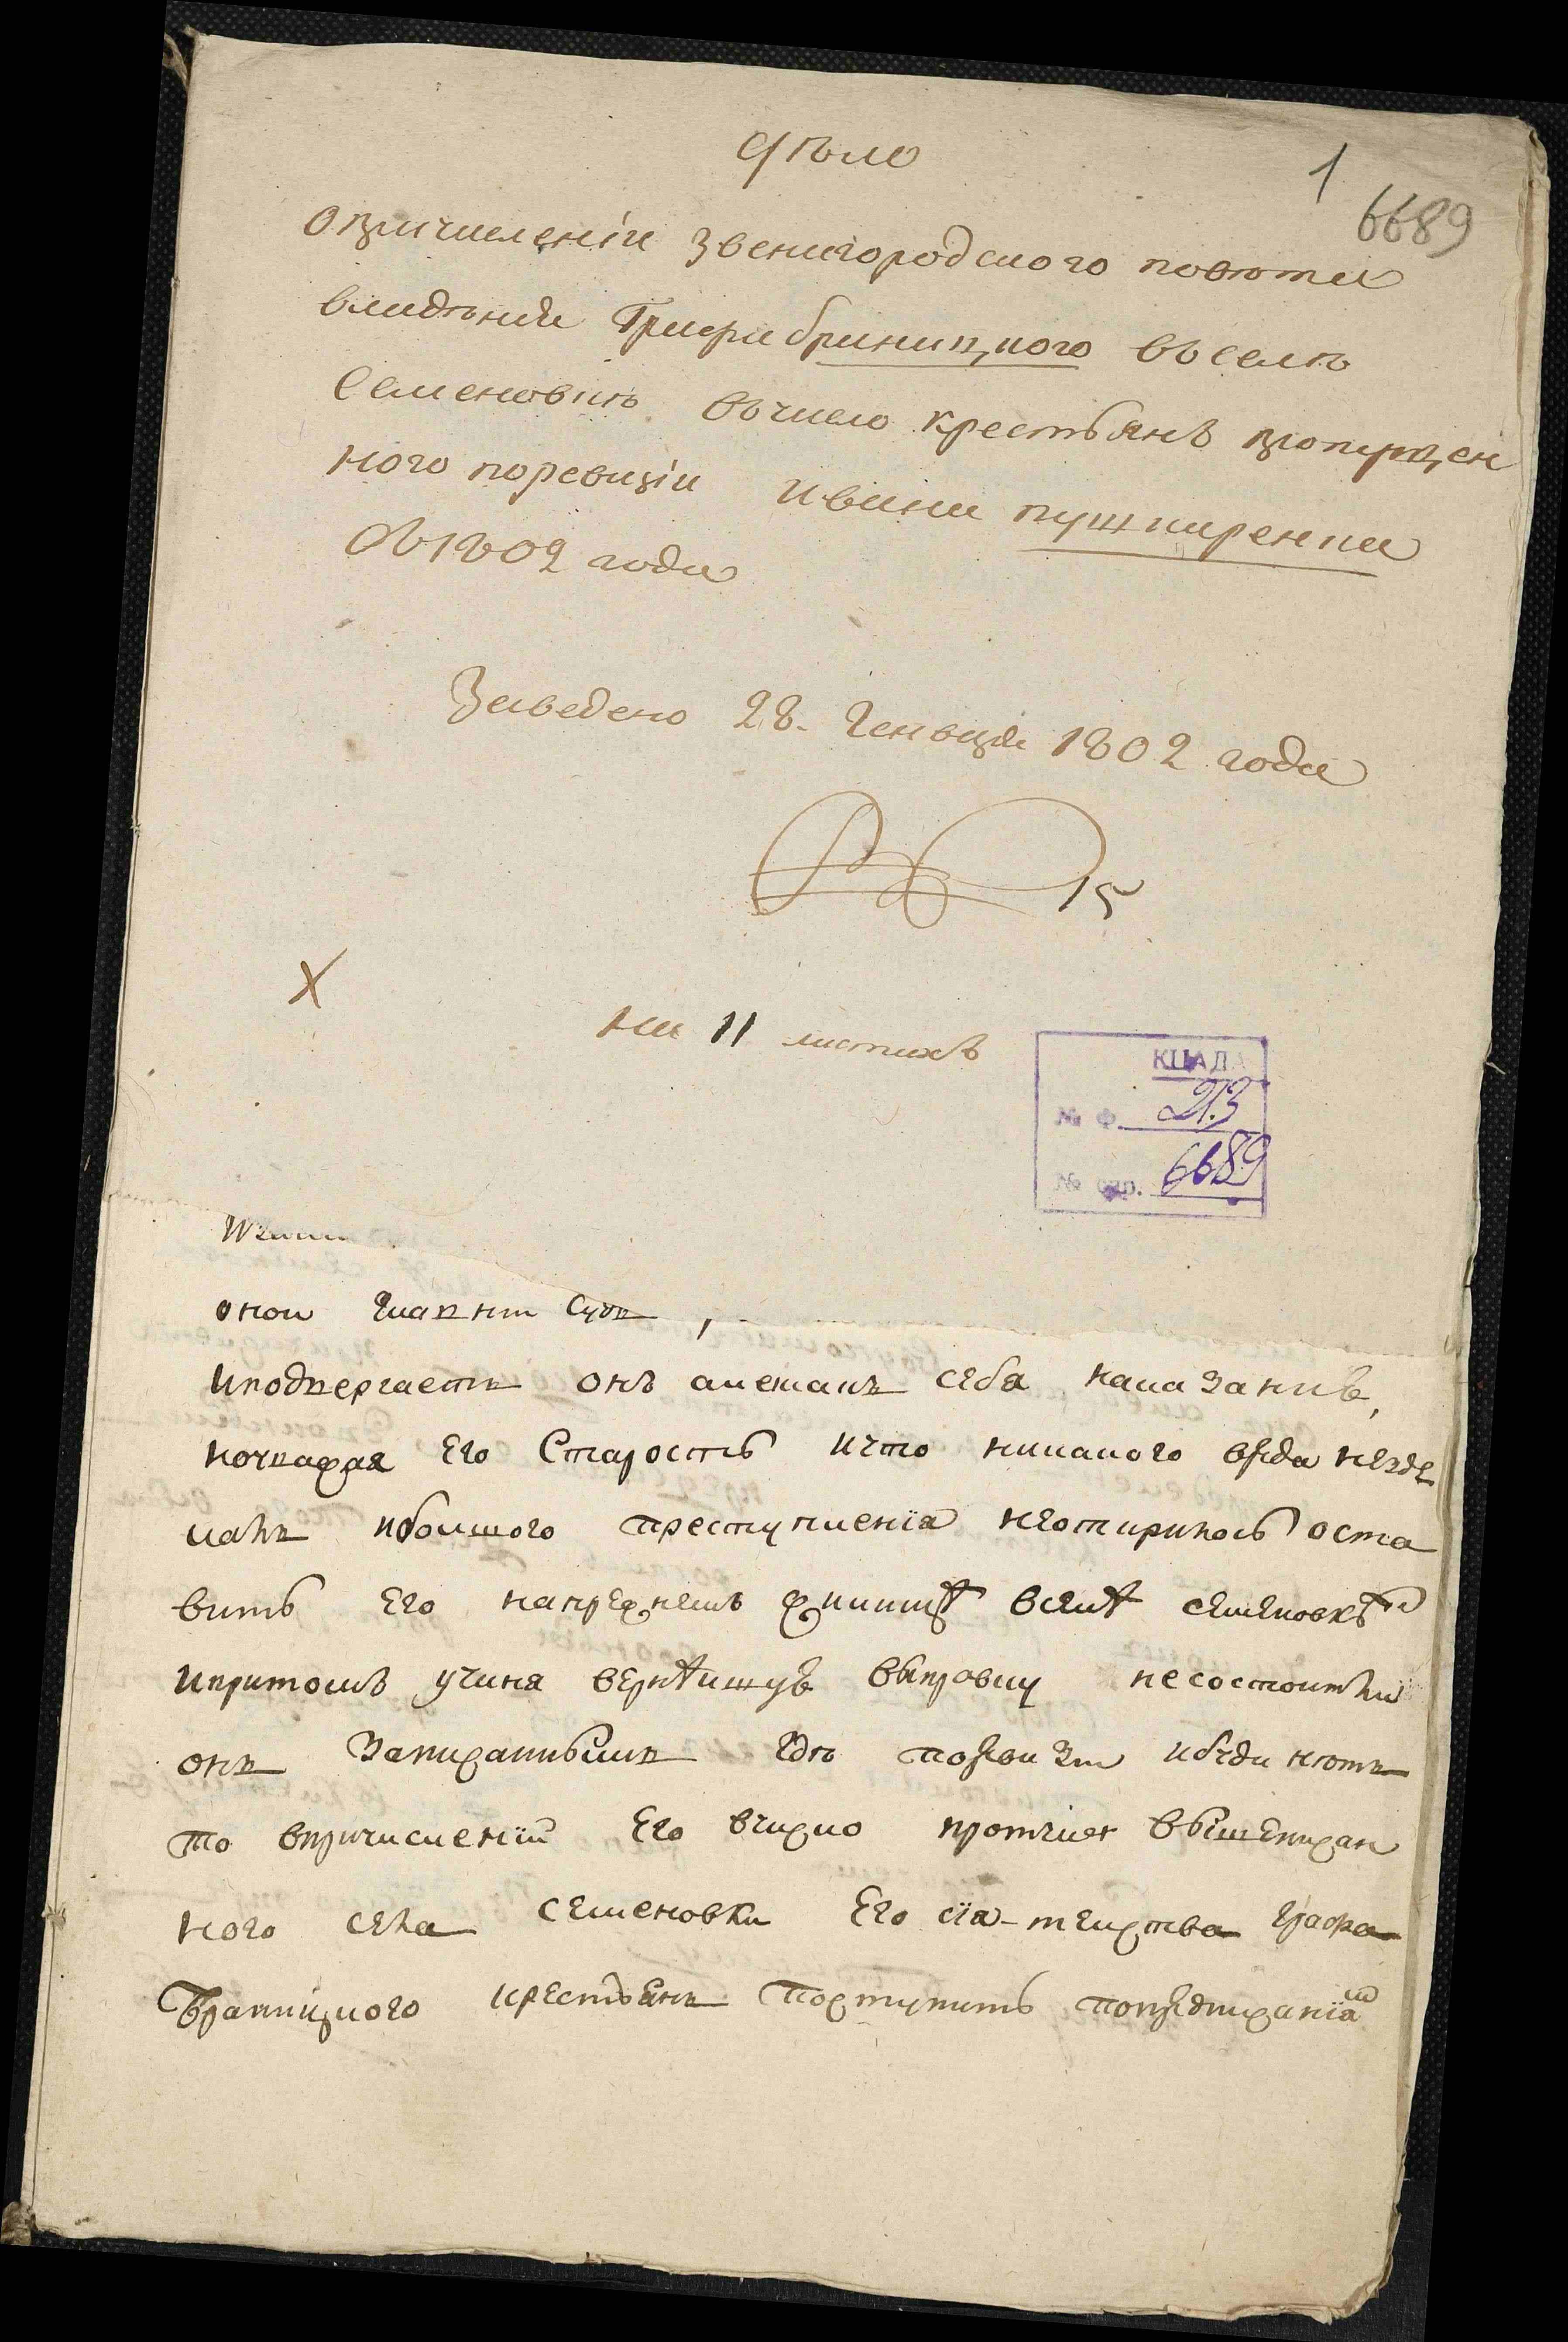 дѣло
1
6689
опричисленіи звенигородского повѣта
владѣнія Графа браницкого въселѣ
Семеновкѣ въчисло крестьянъ пропущен
ного поревизіи ивана пушкаренка
Съ1802 года
Заведено 28. Генваря 1802 года
15
X
на 11 листахъ
КЦАДА
№ Ф. 213
6689
оной
иподвергаетъ онъ себя наказанию,
его Старость ичто никакого вреда незде
лалъ ибольшого преступленія оста
вить его напрежнемъ вселѣ семеновкѣ
ипритомъ учиня выправку несостоитъли
онъ записаннымъ гдѣ поревизіи ибуди нѣтъ
то опричисленіи его вчисло протчих вышеписан
ного села семеновки его сія-тельства графа
Браницкого крестьянъ поступить попредписанія